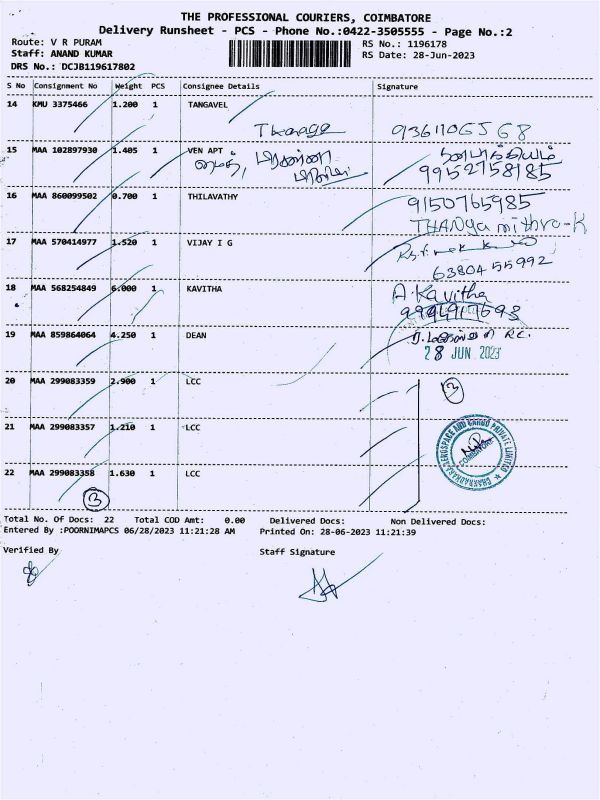 THE PROFESSIONAL COURIERS, COIMBATORE
Delivery Runsheet - PCS - Phone No.:0422-3505555 - Page No.:2
Route: V R PURAM RS No.: 1196178
Staff: ANAND KUMAR RS Date: 28-Jun-2023
DRS No.: DCJB119617802
S No Consignment No Weight PCS Consignee Details Signature
14 KMU 3375466 1.200 1 TANGAVEL
15 MAA 102897930 1.405 1 VEN APT
9952758185
16 MAA 860099502 0.700 1 THILAVATHY 9150765985
THANGamithra-K
17 MAA 570414977 1.520 1 VIJAY I G
6380455992
18 MAA 568254849 6.000 1 KAVITHA A.Kavitha
19 MAA 859864064 4.250 1 DEAN
28 JUN 2023
20 MAA 299083359 2.900 1 LCC 3
21 MAA 299083357 1.210 1 LCC
22 MAA 299083358 1.630 1 LCC
Total No. Of Docs: 22 Total COD Amt: 0.00 Delivered Docs: Non Delivered Docs:
Entered By :POORNIMAPCS 06/28/2023 11:21:28 AM Printed On: 28-06-2023 11:21:39
Verified By Staff Signature